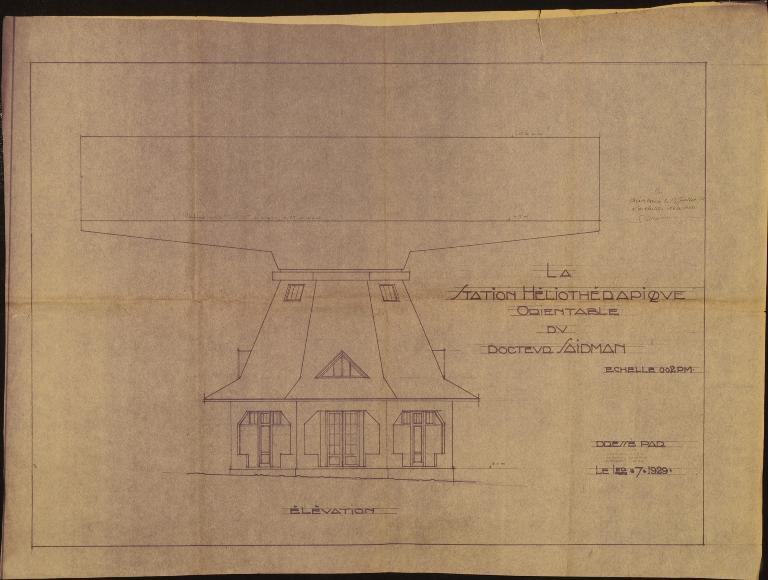 LA
STATION HÉLIOTHÉRAPIQUE
ORIENTABLE
DU
DOCTEUR SAIDMAN
ECHELLE 0.02 P.M.
DRESSÉ PAR
LE 1ER . 7 . 1929 .
ÉLÉVATION